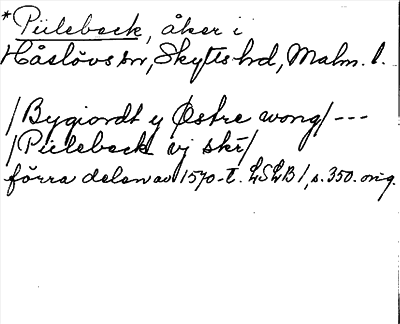 *Piilebeck, åker i
Håslövs sn, Skytts hd, Malm. l.
/Bygiordt y Østre wong/ ---
/Piilebeck vj skr/
förra delen av 1570-t. LSLB 1, s. 350. orig.